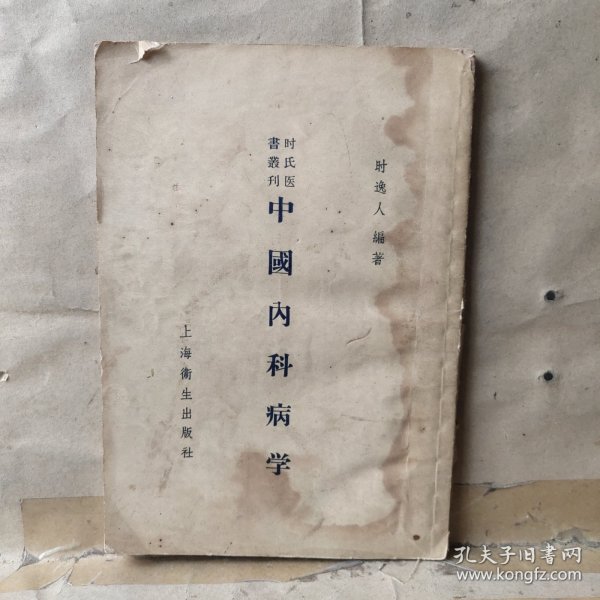 时逸人 編著
时氏医
書叢刊
中國內科病学
上海衛生出版社
孔夫子旧書网
www.kongfz.com